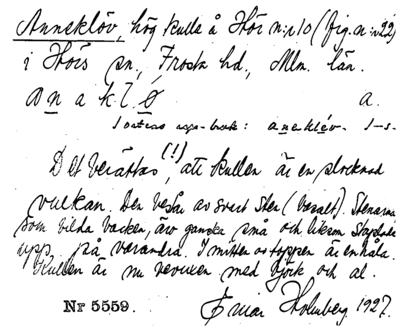 Anneklöv, hög kulle å Hör n:r 10 (fig. n:r 22)
i Hörs sn, Frosta hd, Mlm. län.
a n a k l ø a.
aneklév. 1-s.
Det berättas (!), att kullen är en slocknad
vulkan. Den består av svart sten (basalt). Stenarna,
som bilda backen, äro ganska små och liksom staplade
upp på varandra. I mitten av toppen är en håla.
Kullen är nu bevuxen med björk och al.
Nr 5559. Holmberg 1927.